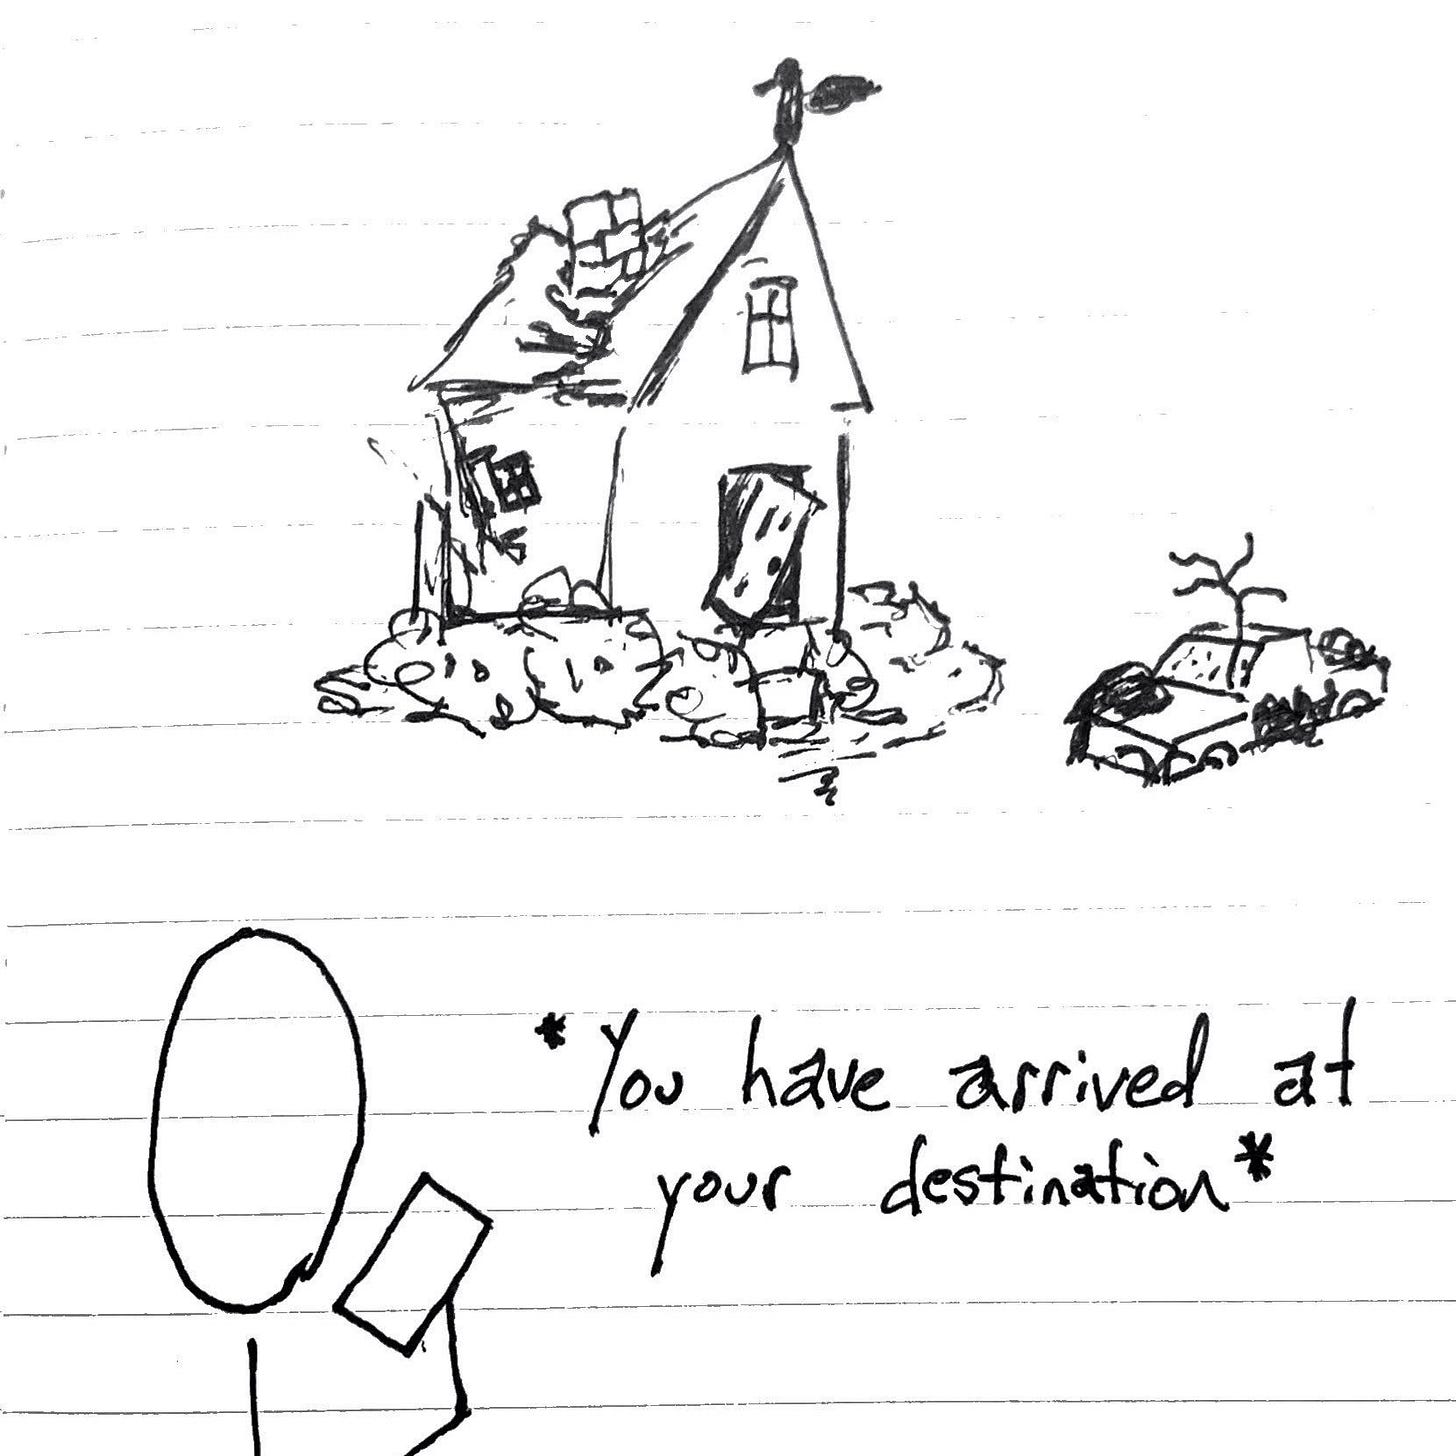 *You have arrived at
your destination*